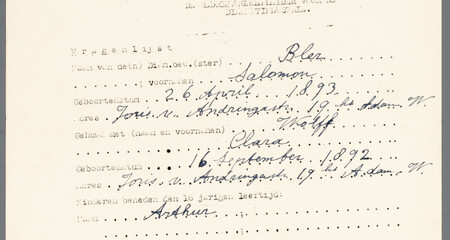 Vragenlijst
Bler
Naam van de(n) Diam.bew.(ster)
Salomon
voornamen
Geboortedatum 26 April 1893
Adres Joris v. Andringastr. 19 hs Adam-W.
Wolff
Gehuwd met (naam en voornamen)
Clara
Geboortedatum 16 September 1892
Adres Joris v. Andringastr. 19 hs A.dam-W.
Kinderen beneden den 16 jarigen leeftijd:
Naam Arthur